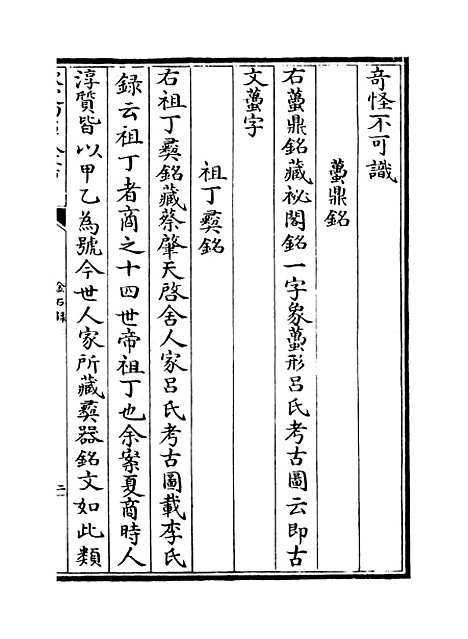 奇怪不可識
蠆鼎銘
右蠆鼎銘藏祕閣銘一字象蠆形呂氏考古圖云即古
文蠆字
祖丁彞銘
右祖丁彞銘藏蔡肇天啓舍人家呂氏考古圖載李氏
録云祖丁者商之十四世帝祖丁也余案夏商時人
淳質皆以甲乙為號今世人家所藏彞器銘文如此類
金石録